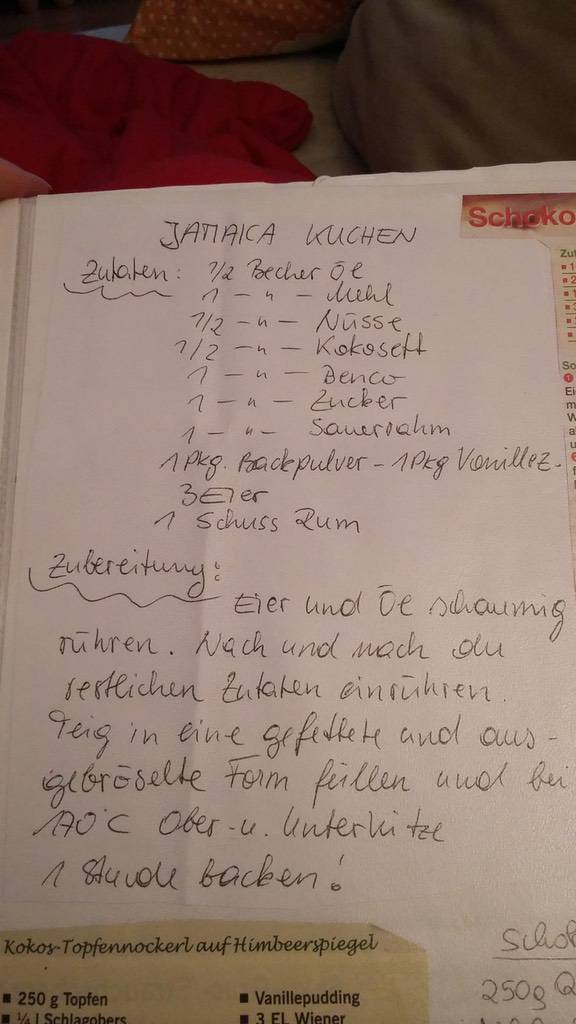 JAMAICA KUCHEN
Zutaten: 1/2 Becher Öl
1 – " – Mehl
1/2 – " – Nüsse
1/2 – " – Kokosett
1 – " – Benco
1 – " – Zucker
1 – " – Sauerrahm
1 Pkg. Backpulver – 1 Pkg Vanillez.
3 Eier
1 Schuss Rum
Zubereitung:
Eier und Öl schaumig
rühren. Nach und nach die
restlichen Zutaten einrühren.
Teig in eine gefettete und aus-
gebröselte Form füllen und bei
170°C Ober- u. Unterhitze
1 Stunde backen!
Schoko
Kokos-Topfennockerl auf Himbeerspiegel
■ 250 g Topfen
■ ¼ l Schlagobers
■ Vanillepudding
■ 3 EL Wiener
250g